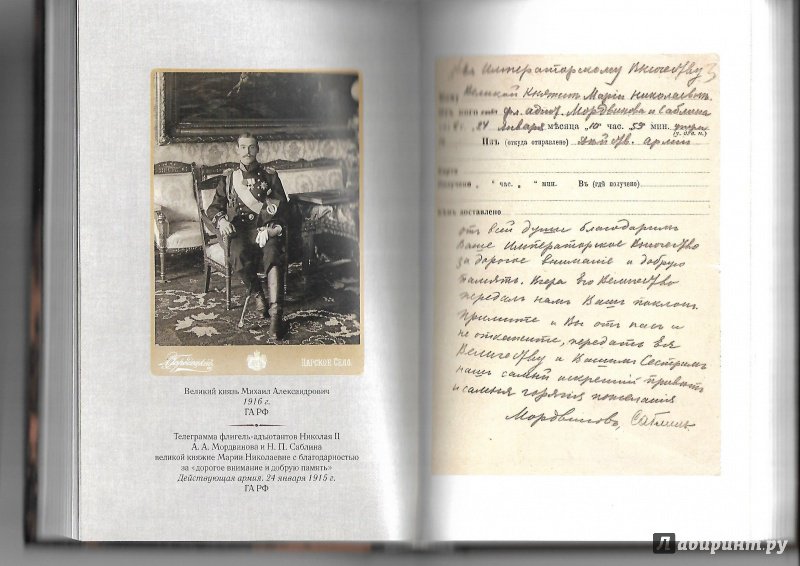 ЦАРСКОЕ СЕЛО
Великий князь Михаил Александрович
1916 г.
ГА РФ
Телеграмма флигель-адъютантов Николая II
А. А. Мордвинова и Н. П. Саблина
великой княжне Марии Николаевне с благодарностью
за «дорогое внимание и добрую память»
Действующая армия. 24 января 1915 г.
ГА РФ
Императорскому Высочеству
Великой Княжне Маріи Николаевнѣ
фл. адют. Мордвинова и Саблина
24 Января мѣсяца 10 час. 53 мин. утра
Изъ (откуда отправлено) арміи
Карта
Получено „ час. „ мин. Въ (гдѣ получено)
Кѣмъ доставлено
отъ всей души благодаримъ
Ваше Императорское Высочество
за дорогое вниманіе и добрую
память. Вчера его Величество
передалъ намъ Вашъ поклонъ.
Примите и Вы отъ насъ и
не откажите, передать Ея
Величеству и Вашимъ Сестрамъ
нашъ самый искренній привѣтъ
и самыя горячія пожеланія
Мордвиновъ, Саблинъ
Лабиринт.ру